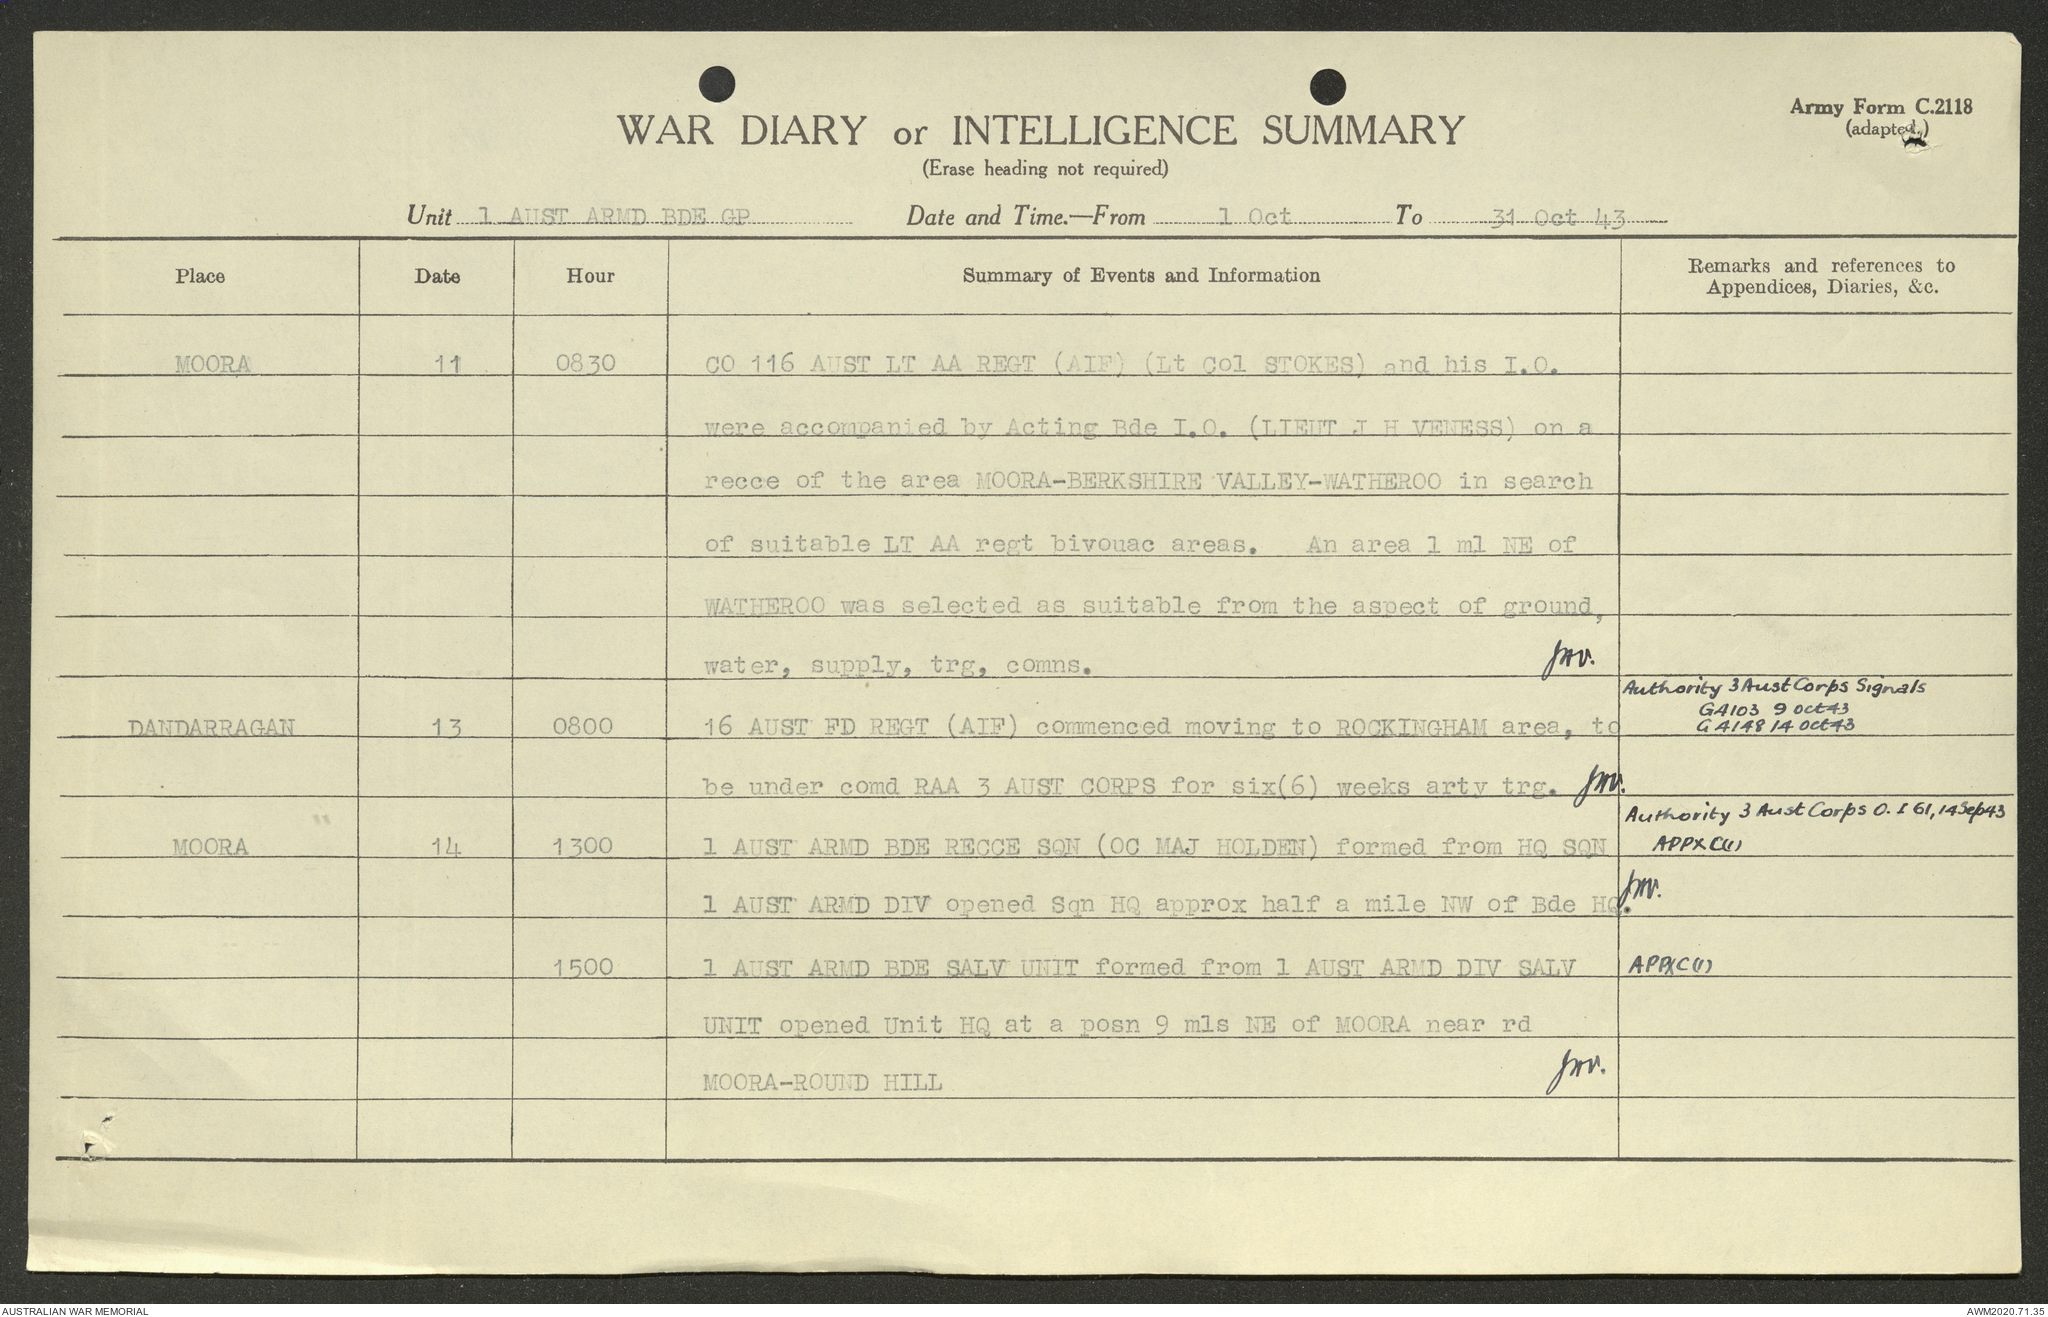 Army Form C.2118
(adapted.)
WAR DIARY or INTELLIGENCE SUMMARY
(Erase heading not required)
Unit 1 AUST ARMD BDE GP Date and Time.—From 1 Oct To 31 Oct 43
Place Date Hour Summary of Events and Information Remarks and references to
Appendices, Diaries, &c.
MOORA 11 0830 CO 116 AUST LT AA REGT (AIF) (Lt Col STOKES) and his I.O.
were accompanied by Acting Bde I.O. (LIEUT J H VENESS) on a
recce of the area MOORA-BERKSHIRE VALLEY-WATHEROO in search
of suitable LT AA regt bivouac areas. An area 1 ml NE of
WATHEROO was selected as suitable from the aspect of ground,
water, supply, trg, comns. JHV.
Authority 3 Aust Corps Signals
GA103 9 Oct 43
DANDARRAGAN 13 0800 16 AUST FD REGT (AIF) commenced moving to ROCKINGHAM area, to GA148 14 Oct 43
be under comd RAA 3 AUST CORPS for six(6) weeks arty trg. JHV.
Authority 3 Aust Corps O. I 61, 14 Sep 43
MOORA 14 1300 1 AUST ARMD BDE RECCE SQN (OC MAJ HOLDEN) formed from HQ SQN APPX C(1)
1 AUST ARMD DIV opened Sqn HQ approx half a mile NW of Bde HQ. JHV.
1500 1 AUST ARMD BDE SALV UNIT formed from 1 AUST ARMD DIV SALV APPX C(1)
UNIT opened Unit HQ at a posn 9 mls NE of MOORA near rd
MOORA-ROUND HILL JHV.
AUSTRALIAN WAR MEMORIAL AWM2020.71.35